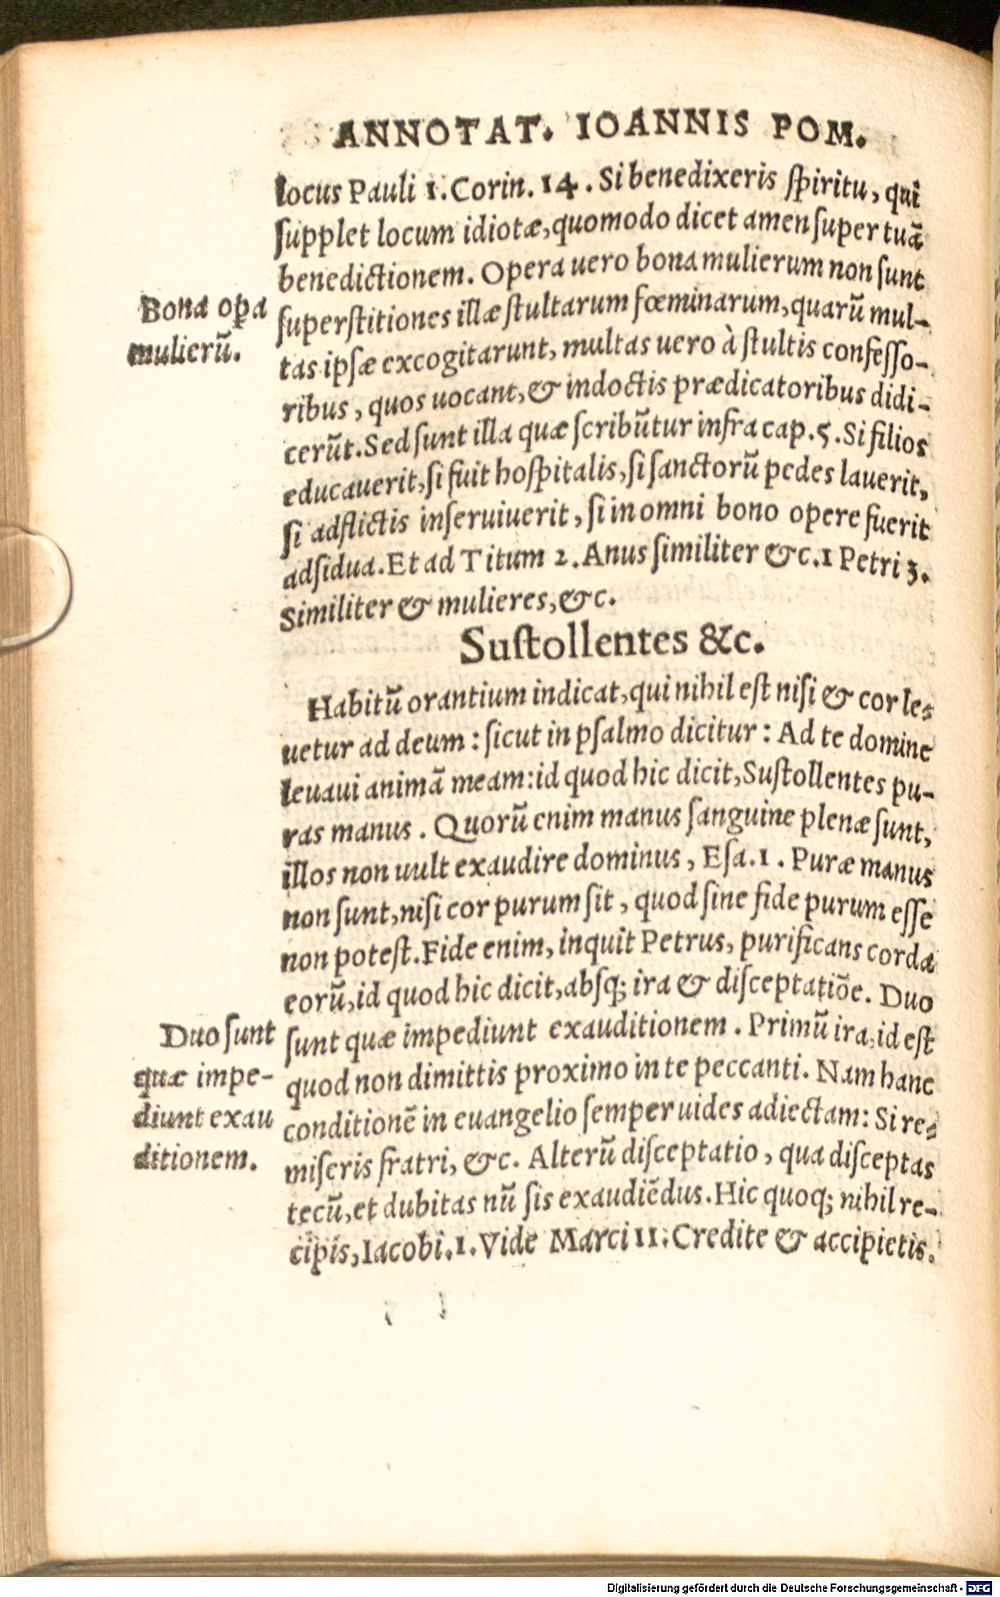 ANNOTAT. IOANNIS POM.
locus Pauli 1. Corin. 14. Si benedixeris ſpiritu, qui
ſupplet locum idiotæ, quomodo dicet amen ſuper tuã
benedictionem. Opera uero bona mulierum non ſunt
Bona opa
mulierũ.
ſuperſtitiones illæ ſtultarum fœminarum, quarũ mul-
tas ipſæ excogitarunt, multas uero à ſtultis confeſſo-
ribus, quos uocant, & indoctis prædicatoribus didi-
cerũt. Sed ſunt illa quæ ſcribũtur infra cap. 5. Si filios
educauerit, ſi fuit hoſpitalis, ſi ſanctorũ pedes lauerit,
ſi adflictis inſeruiuerit, ſi in omni bono opere fuerit
adſidua. Et ad Titum 2. Anus ſimiliter &c. 1 Petri 3.
Similiter & mulieres, &c.
Suſtollentes &c.
Habitũ orantium indicat, qui nihil eſt niſi & cor le-
uetur ad deum: ſicut in pſalmo dicitur: Ad te domine
leuaui animã meam: id quod hic dicit, Suſtollentes pu-
ras manus. Quorũ enim manus ſanguine plenæ ſunt,
illos non uult exaudire dominus, Eſa. 1. Puræ manus
non ſunt, niſi cor purum ſit, quod ſine fide purum eſſe
non poteſt. Fide enim, inquit Petrus, purificans corda
eorũ, id quod hic dicit, abſq; ira & diſceptatiõe. Duo
Duo ſunt
quæ impe-
diunt exau
ditionem.
ſunt quæ impediunt exauditionem. Primũ ira, id eſt
quod non dimittis proximo in te peccanti. Nam hanc
conditionẽ in euangelio ſemper uides adiectam: Si re-
miſeris fratri, &c. Alterũ diſceptatio, qua diſceptas
tecũ, et dubitas nũ ſis exaudiẽdus. Hic quoq; nihil re-
cipis, Iacobi. 1. Vide Marci 11. Credite & accipietis.
Digitalisierung gefördert durch die Deutsche Forschungsgemeinschaft - DFG